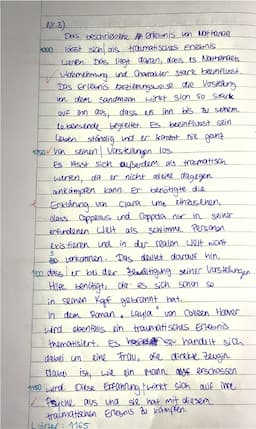 Nr.3)
Das beschriebene Erlebnis von Nathanael
1000 lässt sich als traumatisches Erlebnis
werten. Das liegt daran, dass es Nathanaels
Wahrnehmung und Charakter stark beeinflusst.
Das Erlebnis beziehungsweise die Vorstellung
von dem Sandmann wirkt sich so stark
auf ihn aus, dass es ihn bis zu seinem
Lebensende begleitet. Es beeinflusst sein
Leben ständig und er kommt nie ganz
von seinen Vorstellungen los.
Es lässt sich außerdem als traumatisch
werten, da er nicht alleine dagegen
ankämpfen kann. Er benötigte die
Erklärung von Clara um einzusehen,
dass Coppelius und Coppola nur in seiner
erfundenen Welt als schlimme Personen
existieren und in der realen Welt nicht
so vorkommen. Das deutet darauf hin,
1100 dass er bei der Bewältigung seiner Vorstellungen
Hilfe benötigt, die es sich schon so
in seinen Kopf gebrannt hat.
In dem Roman „Layla" von Colleen Hoover
wird ebenfalls ein traumatisches Erlebnis
thematisiert. Es handelt sich
dabei um eine Frau, die direkte Zeugin
davon ist, wie ein Mann erschossen
1150 wird. Diese Erfahrung wirkt sich auf ihre
Psyche aus und sie hat mit diesem
traumatischen Erlebnis zu kämpfen.
Wörter: 1165